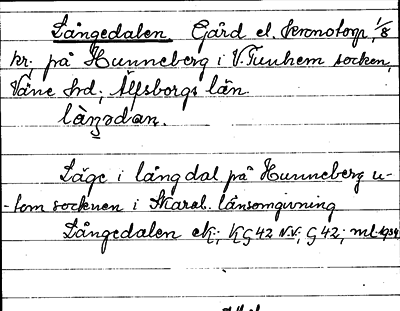 Långedalen. Gård el. kronotorp, 1/8
kr. på Hunneberg i V. Tunhem socken,
Väne hrd; Älfsborgs län
Läge i lång dal på Hunneberg u-
-tom socknen i Skarab. länsomgivning
Långedalen ek; KG 42 N.V.; G 42; ml. 1934